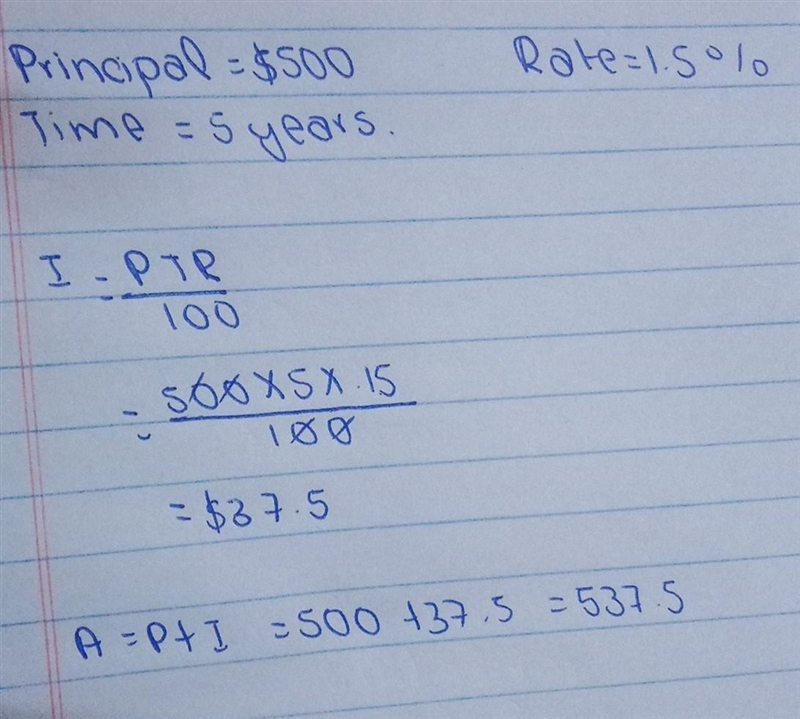 Principal = $500 Rate = 1.5%
Time = 5 years.
I = PTR
100
= 500 X 5 X .15
100
= $37.5
A = P + I = 500 + 37.5 = 537.5